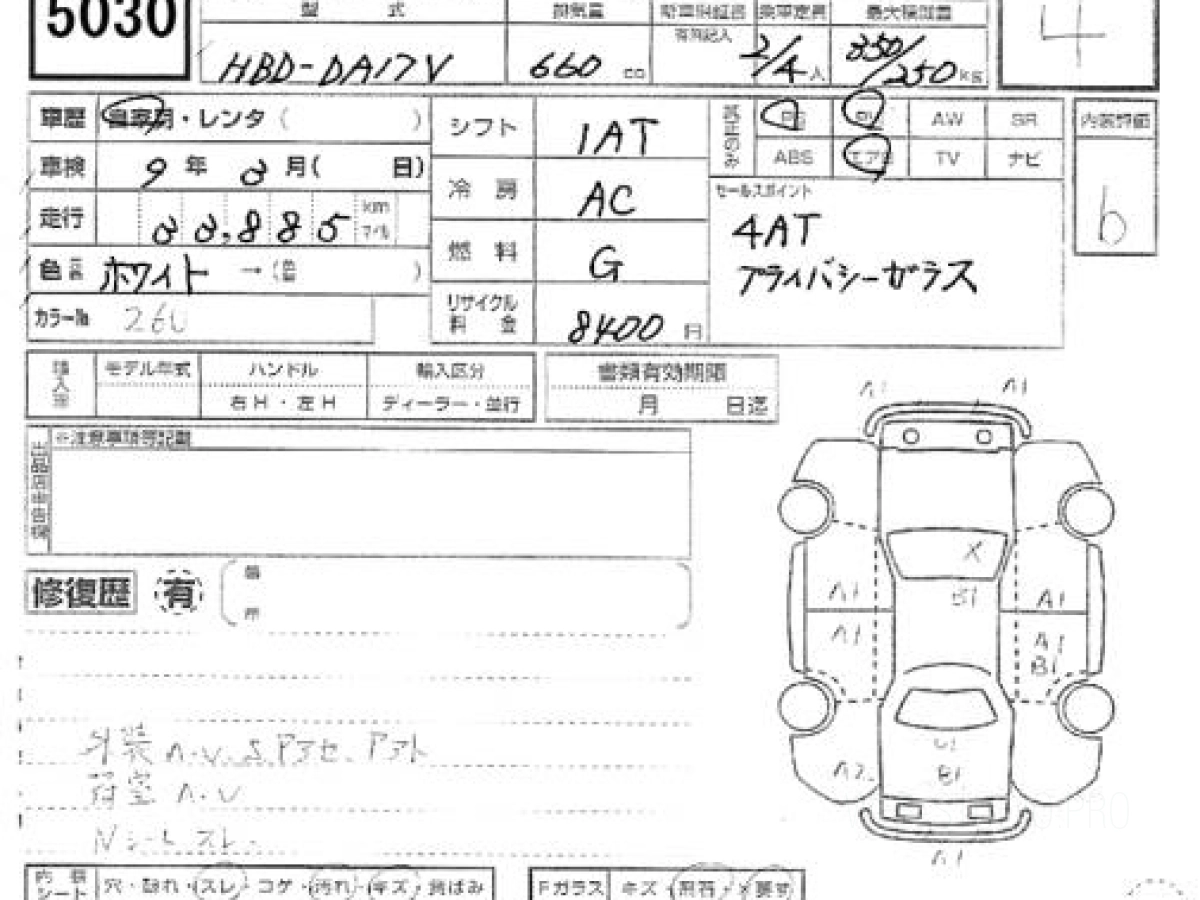 5030
型 式 排気量 乗車定員 最大積載量
有無記入
HBD-DA17V 660 cc 2/4人 350/250kg
4
車歴 自家用・レンタ( )
シフト 1AT
PS PW AW SR
内装評価
車検 9年 3月( 日)
ABS エアB TV ナビ
冷房 AC
セールスポイント
走行 33,885 km マイル
4AT
b
燃料 G
プライバシーガラス
色 ホワイト →( )
リサイクル料金 8400円
カラー№ 26U
輸入車 モデル年式 ハンドル 輸入区分
右H・左H ディーラー・並行
書類有効期限
月 日迄
※注意事項等記載
出品店申告欄
修復歴 有
A1 A1
X
A1 B1 A1
A1 A1
B1
U1
A2 B1
A1
外装 A.V.
荷室 A.V
Nシートスレ
内装シート 穴・スレ・コゲ・汚れ・キズ・黄ばみ
Fガラス キズ・飛石・X要す